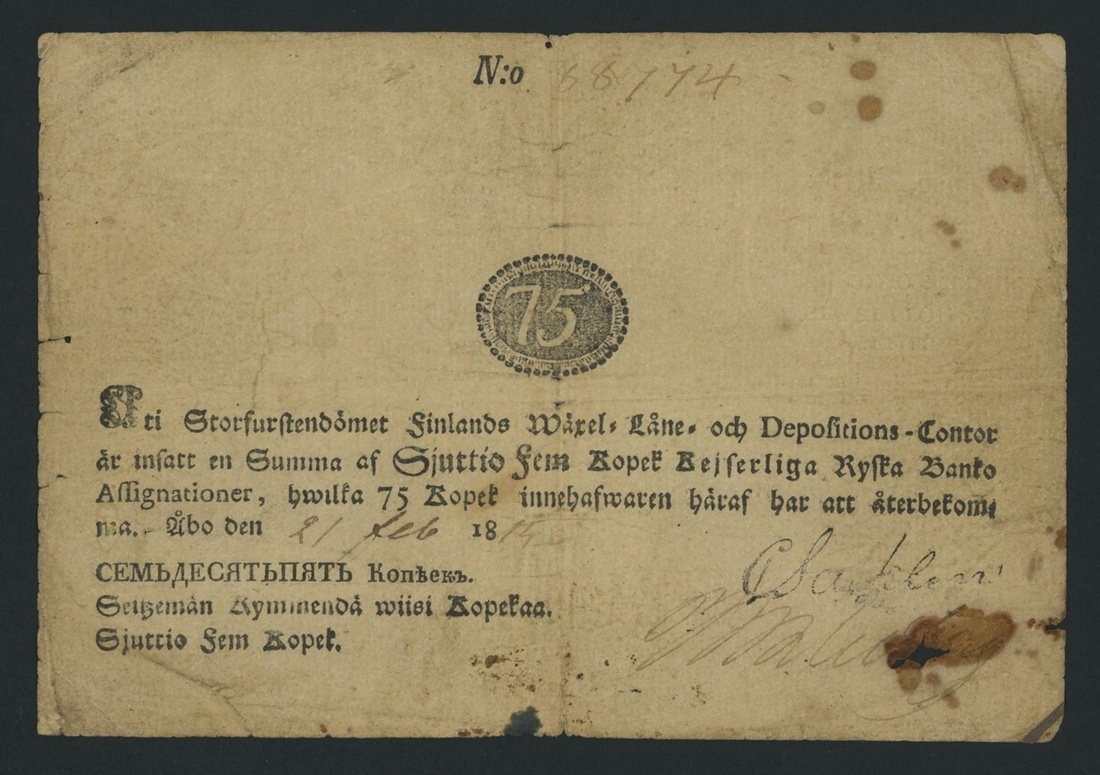 N:o 88774
75
Uti Storfurstendömet Finlands Wäxel- Låne- och Depositions-Contor
är insatt en Summa af Sjuttio Fem Kopek Kejserliga Ryska Banko
Assignationer, hwilka 75 Kopek innehafwaren häraf har att återbekom-
ma. Åbo den 21 feb 18
СЕМЬДЕСЯТЬПЯТЬ Копѣекъ.
Seitzemän Kymmendä wiisi Kopekaa.
Sjuttio Fem Kopek.